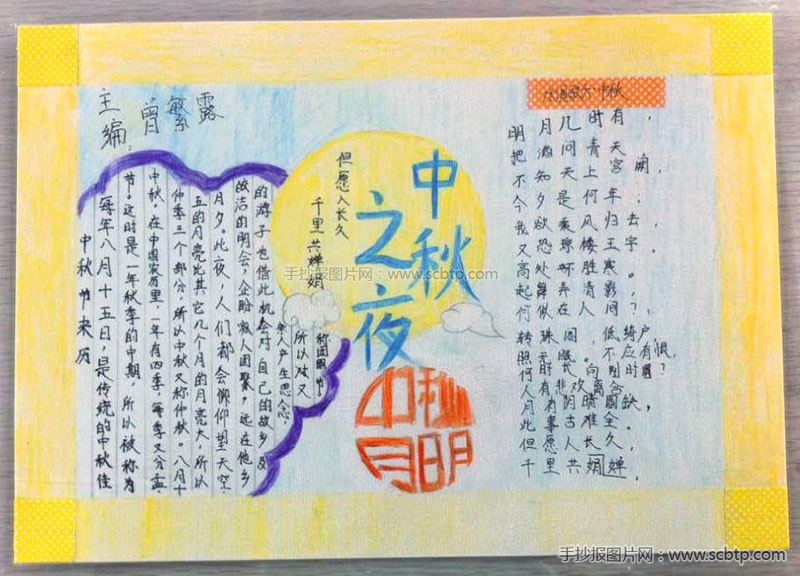 主编:曾繁露
中秋节来历
每年八月十五日,是传统的中秋佳
节。这时是一年秋季的中期,所以被称为
中秋。在中国农历里,一年有四季,每季又分孟、
仲季三个部分,所以中秋又称仲秋。八月十
五的月亮比其它几个月的月亮大,所以
月夕。此夜,人们都会仰望天空
皎洁的明会,企盼家人团聚,远在他乡
的游子也借此机会对自己的故乡及
亲人产生思念.
所以对又
称团圆节
但愿人长久
千里共婵娟
中秋
之夜
中秋
月明
水调歌头·中秋
明月几时有,
把酒问青天
不知天上宫阙,
今夕是何年;
我欲乘风归去;
又恐琼楼玉宇.
高处好胜寒。
起舞弄清影
何似在人间?
转珠阁低绮户
照无眠不应有恨?
何时长向别时圆
人有悲欢离合
月有阴晴圆缺,
此事古难全
但愿人长久
千里共婵娟
手抄报图片网:www.scbtp.com
手抄报图片网:www.scbtp.com